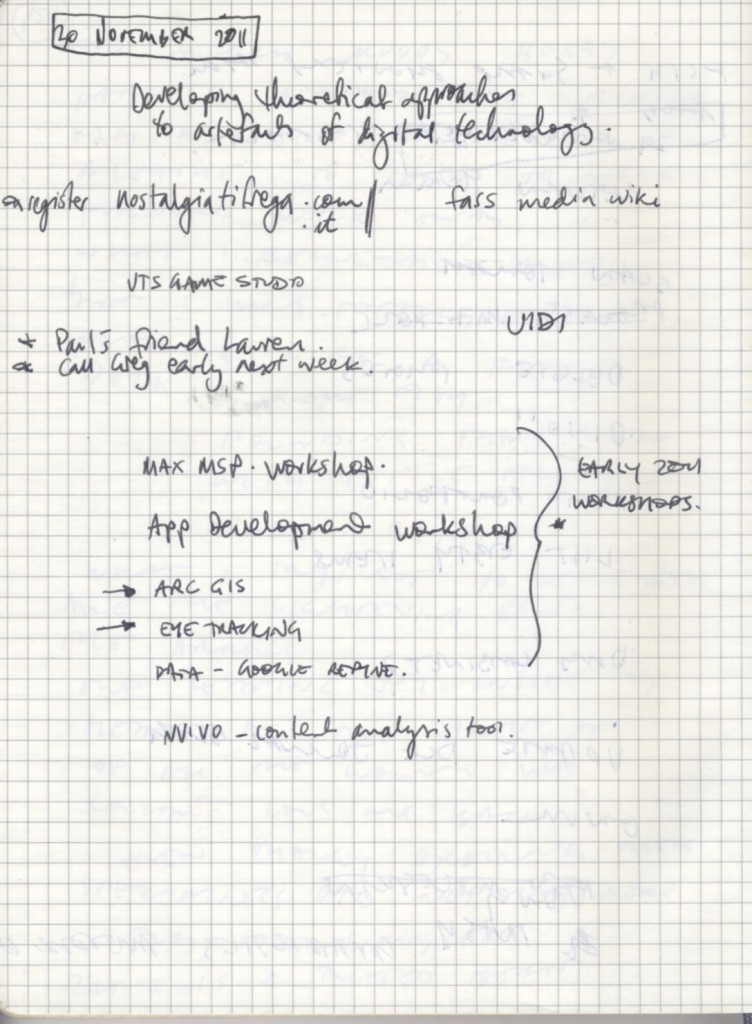 20 NOVEMBER 2011
Developing theoretical approaches
to artefacts of digital technology.
register nostalgiatifrega.com // fass media wiki
.it
UTS GAME STUDIO
* Paul's friend Lauren.
* Call Greg early next week.
MAX MSP. workshop.
EARLY 2011
WORKSHOPS.
App Development workshop *
→ ARC GIS
→ EYE TRACKING
DATA - GOOGLE REFINE.
NVIVO - content analysis tool.